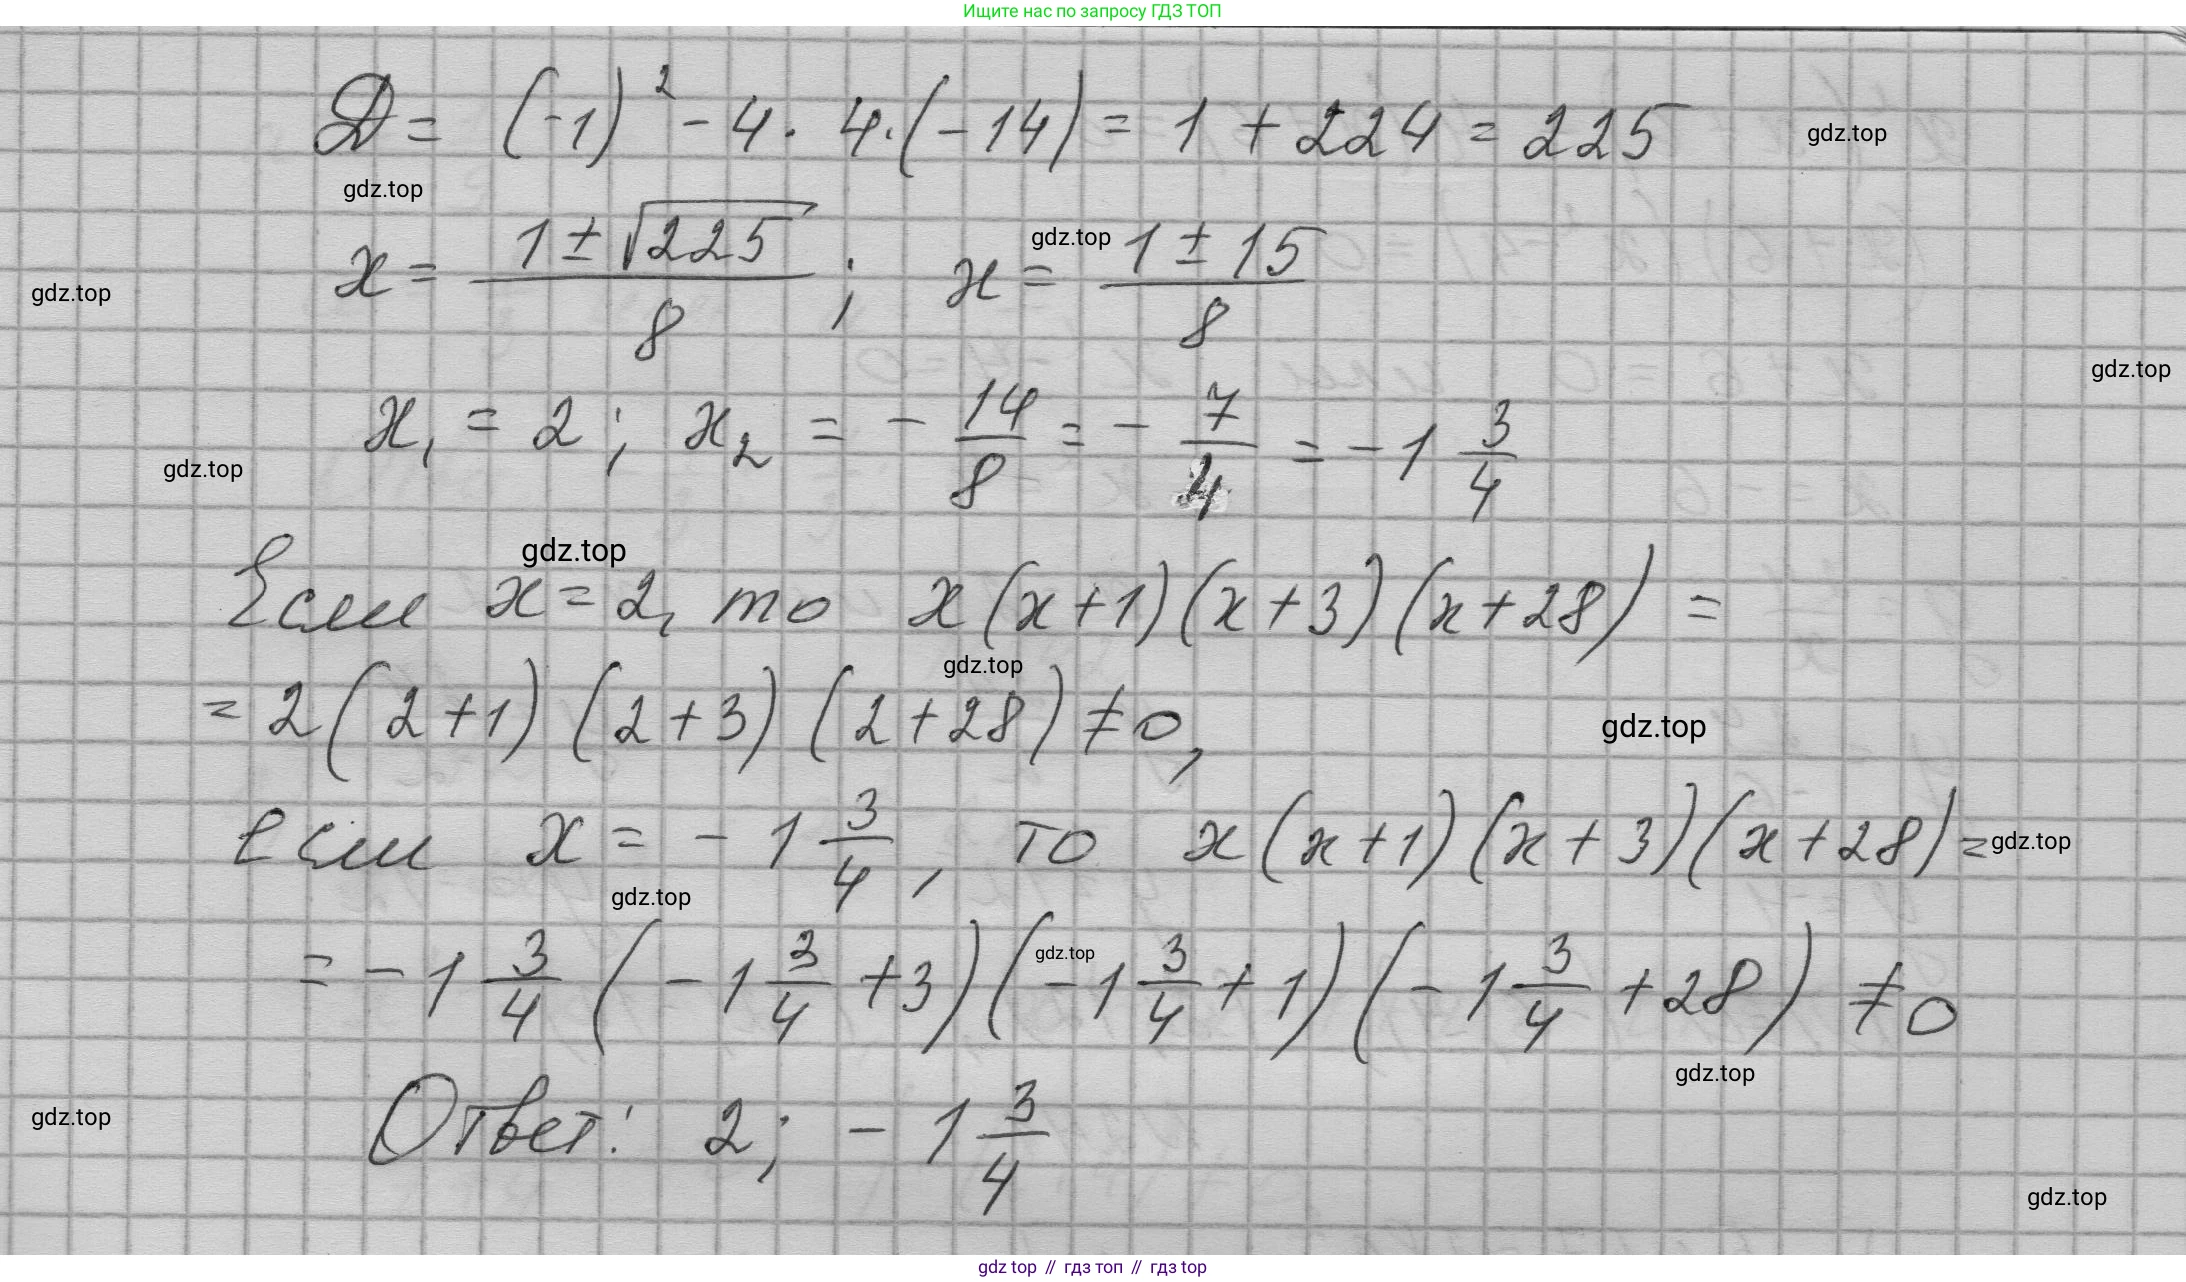 Ищите нас по запросу ГДЗ ТОП
D = (-1)² - 4 · 4 · (-14) = 1 + 224 = 225
gdz.top
gdz.top
x = (1 ± √225)/8 ; x = (1 ± 15)/8
gdz.top
gdz.top
gdz.top
x₁ = 2 ; x₂ = - 14/8 = - 7/4 = - 1 3/4
gdz.top
gdz.top
Если x = 2, то x (x + 1) (x + 3) (x + 28) =
gdz.top
= 2 (2 + 1) (2 + 3) (2 + 28) ≠ 0,
gdz.top
если x = - 1 3/4, то x (x + 1) (x + 3) (x + 28) =
gdz.top
gdz.top
= - 1 3/4 (- 1 3/4 + 3) (- 1 3/4 + 1) (- 1 3/4 + 28) ≠ 0
gdz.top
gdz.top
Ответ: 2; - 1 3/4
gdz.top
gdz.top
gdz top // гдз топ // gdz top